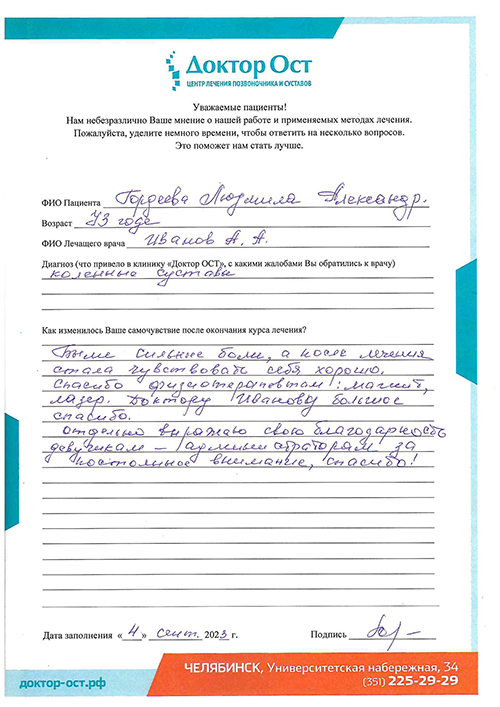 Доктор Ост
ЦЕНТР ЛЕЧЕНИЯ ПОЗВОНОЧНИКА И СУСТАВОВ
Уважаемые пациенты!
Нам небезразлично Ваше мнение о нашей работе и применяемых методах лечения.
Пожалуйста, уделите немного времени, чтобы ответить на несколько вопросов.
Это поможет нам стать лучше.
ФИО Пациента Гордеева Людмила Александр.
Возраст 73 года
ФИО Лечащего врача Иванов А. А.
Диагноз (что привело в клинику «Доктор ОСТ», с какими жалобами Вы обратились к врачу)
коленные суставы
Как изменилось Ваше самочувствие после окончания курса лечения?
Были сильные боли, а после лечения
стала чувствовать себя хорошо.
Спасибо физиотерапевтам: магнит,
лазер. Доктору Иванову большое
спасибо.
Отдельно выражаю свою благодарность
девушкам – администраторам за
постоянное внимание, спасибо!
Дата заполнения «4» сент. 2023 г. Подпись
ЧЕЛЯБИНСК, Университетская набережная, 34
доктор-ост.рф (351) 225-29-29